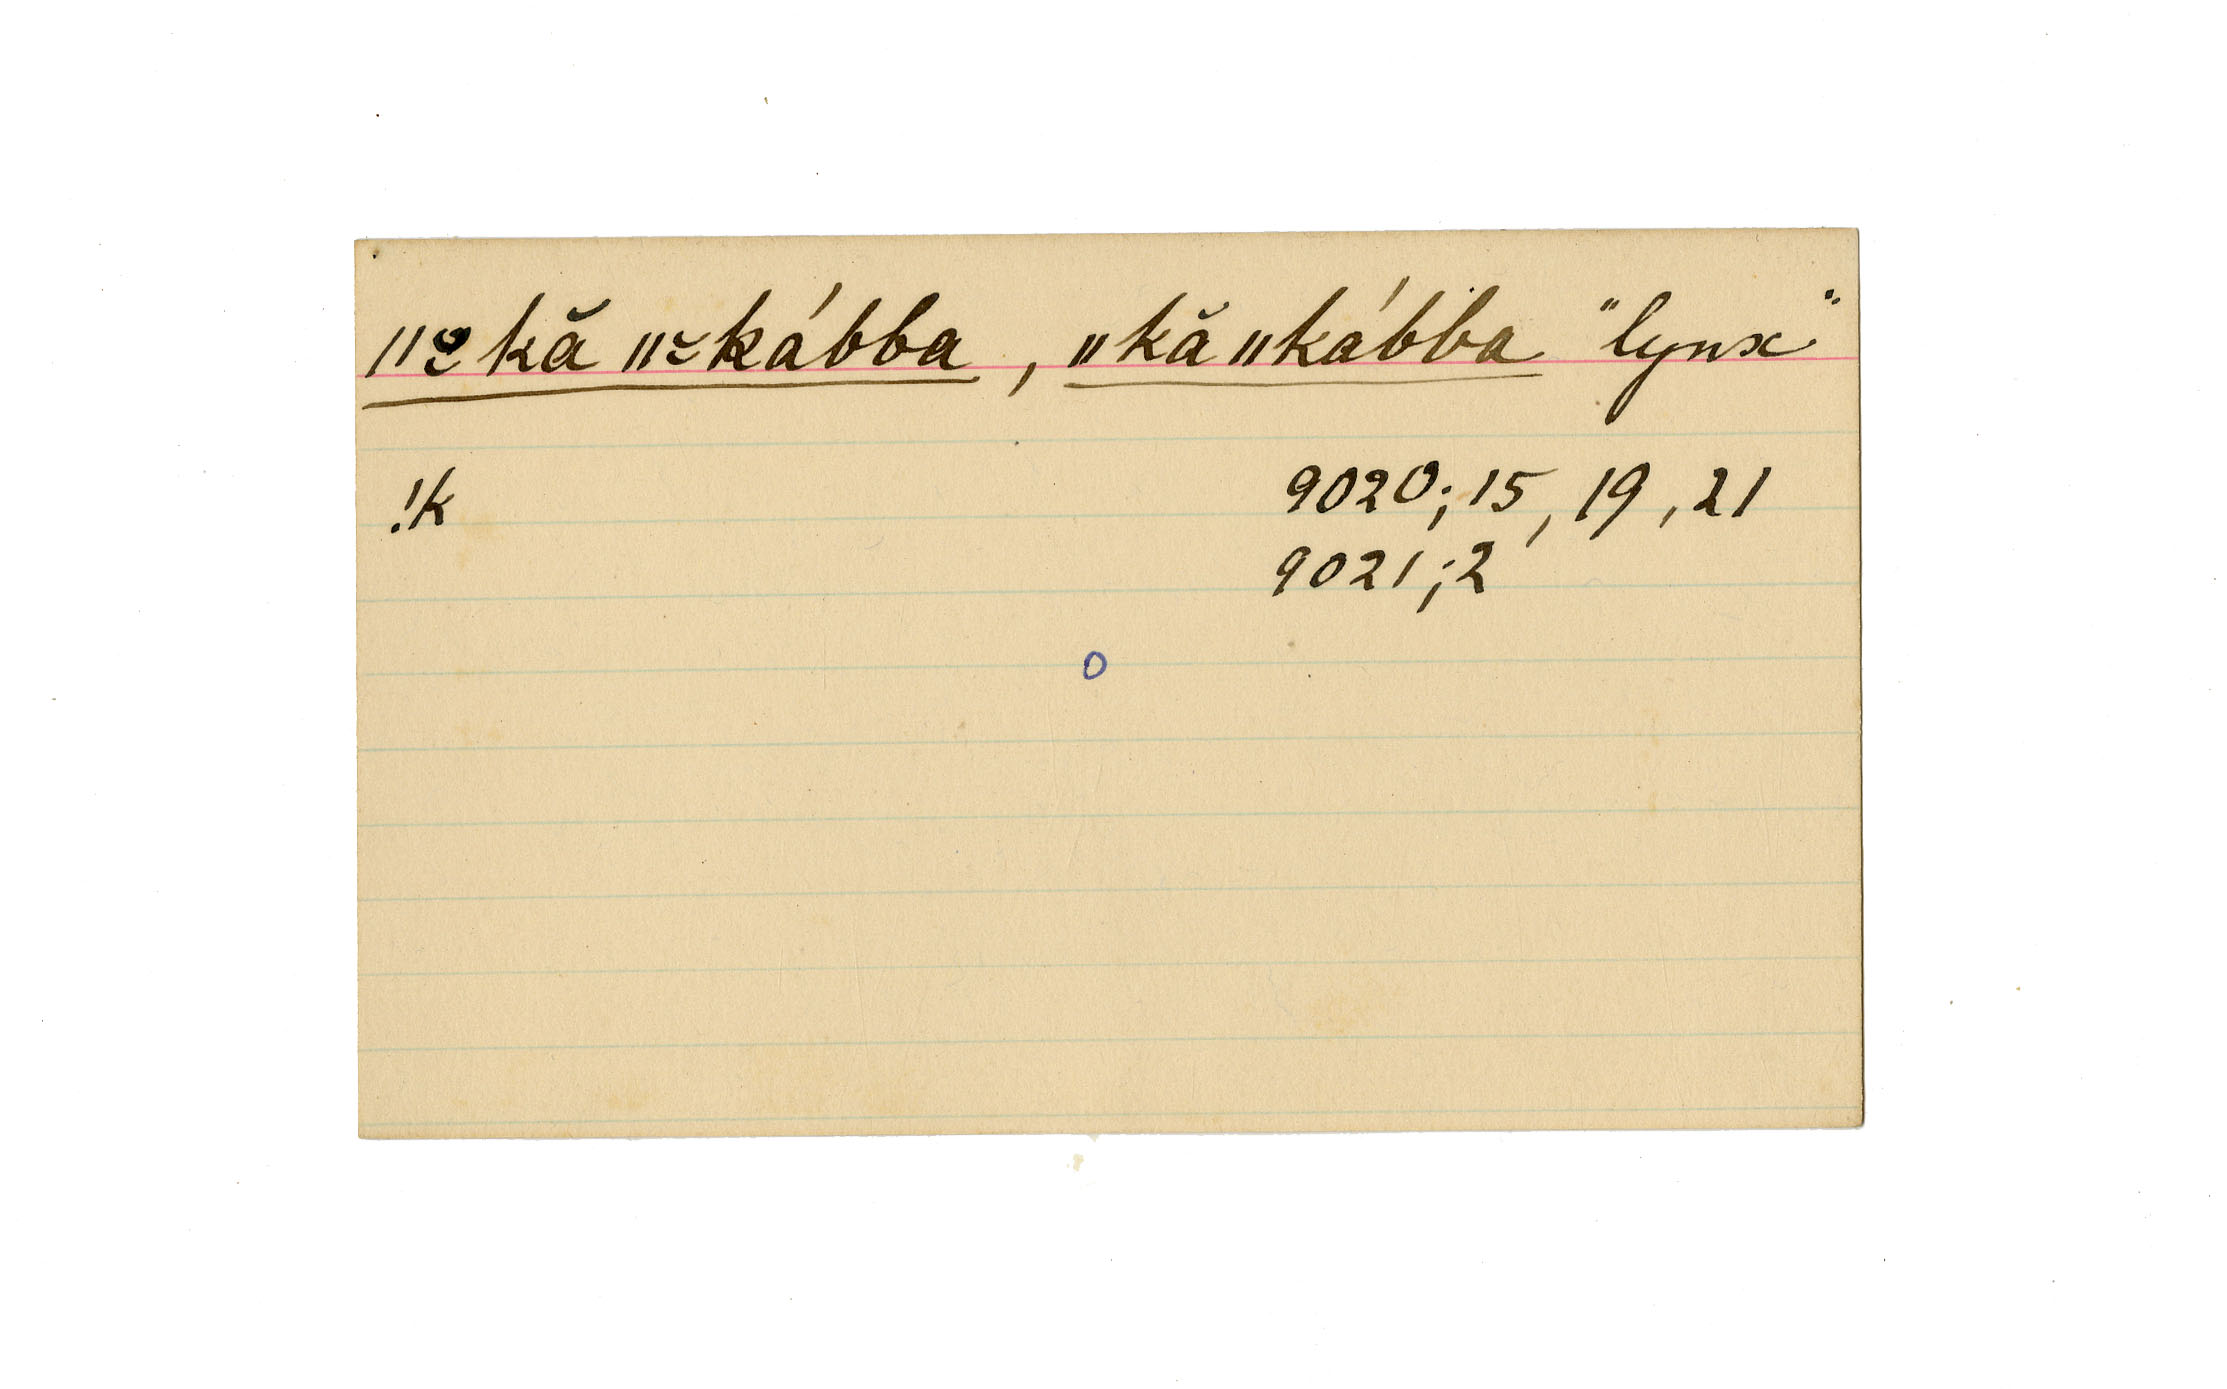 ǁ꞊kă ǁ꞊kábba, ǁkă ǁkábba "lynx"
!k 9020; 15, 19, 21
9021; 2
o